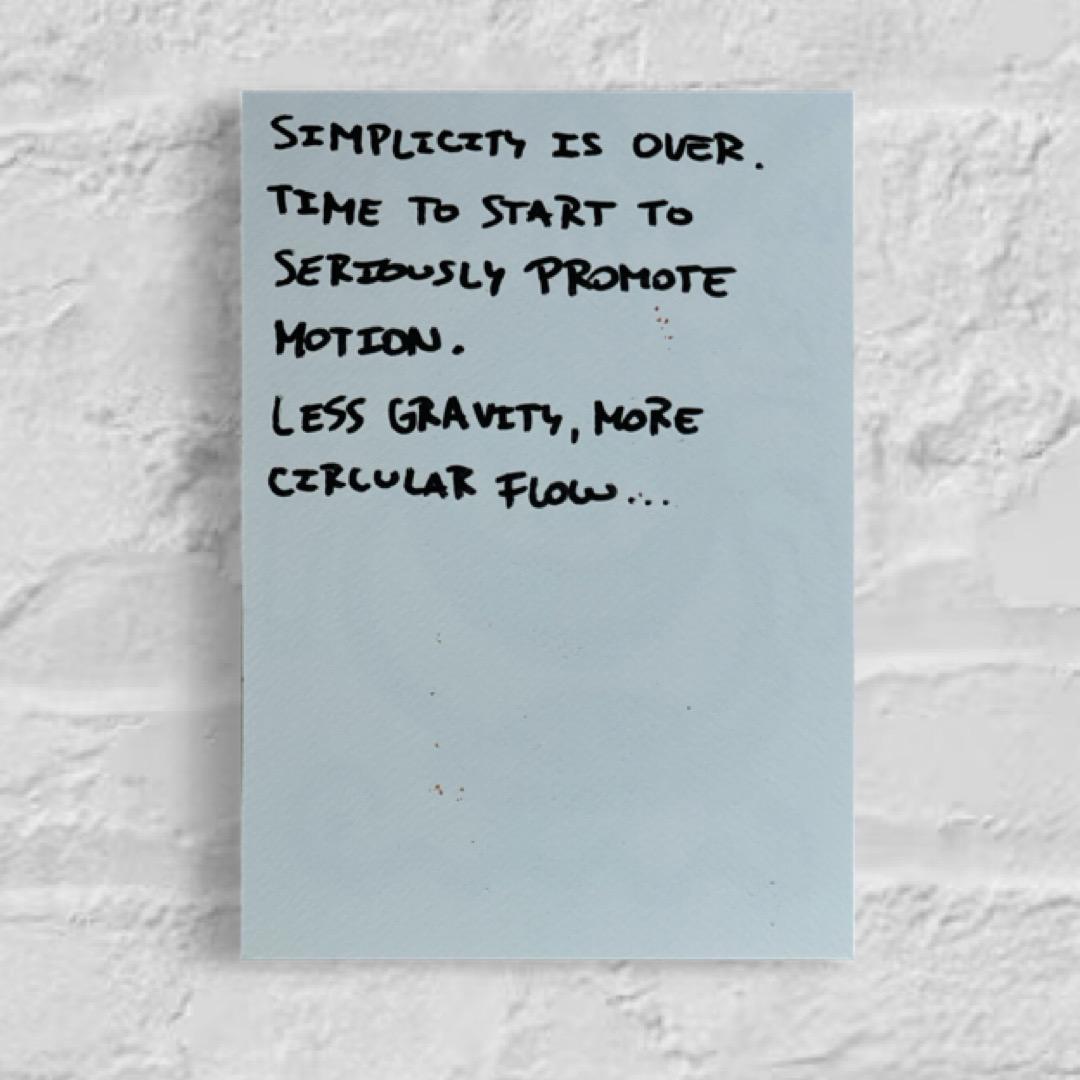 SIMPLICITY IS OVER.
TIME TO START TO
SERIOUSLY PROMOTE
MOTION.
LESS GRAVITY, MORE
CIRCULAR FLOW...